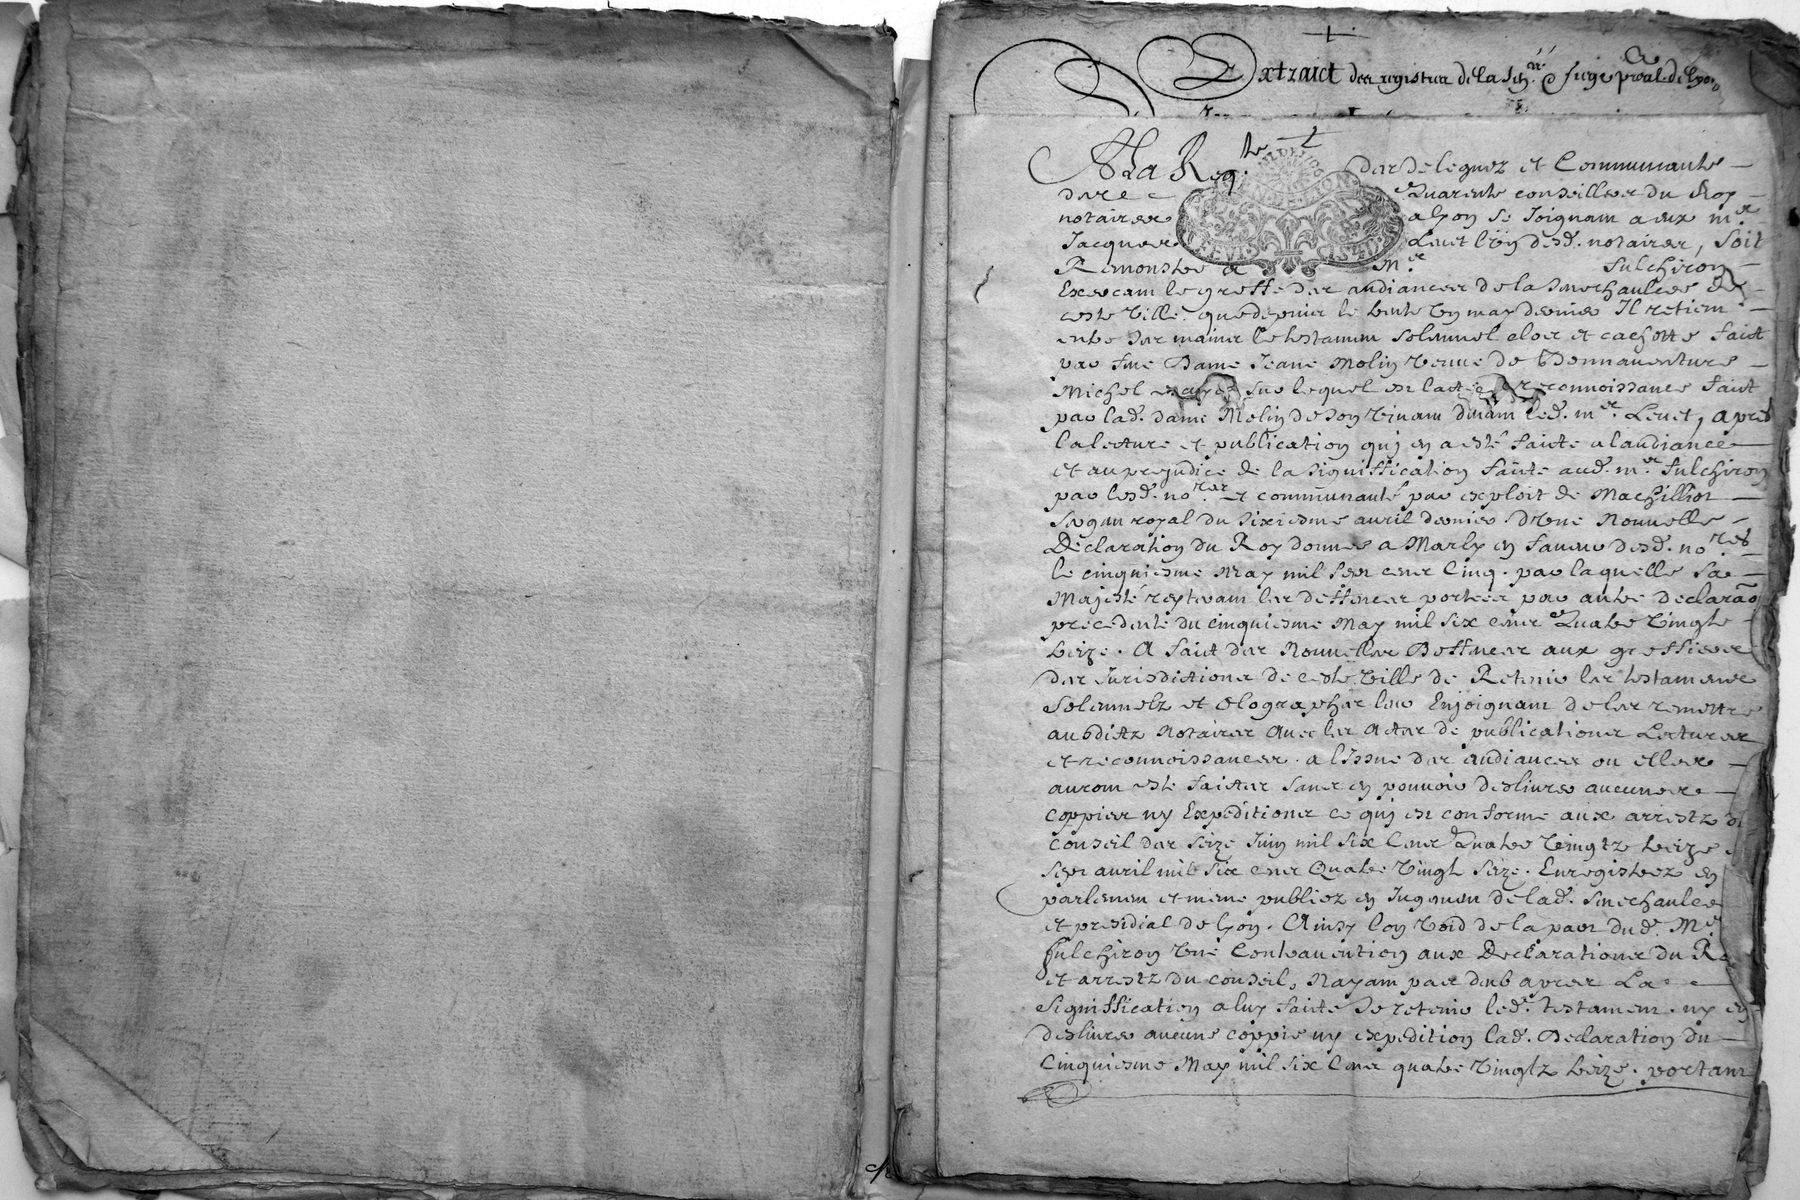 Extraict des registres de la Sen.ée & siege p̃nal de lyon
A La Req.te des deleguez et Communauté
des Quarente conseillers du Roy
notaires a lyon se Joignant a eux m.e
Jacques Levet l'un desd. notaires, soit
Remonstré a M.e fulchiron
Exerceant le greffe des audiances de la senechaulcée de
ceste Ville, que depuis le trente Un may dernier Il retient
entre ses mains le testament solemnel clos et cachetté faict
par fue Dame Jeane Molin Veuve de Bonnaventure
Michel sur lequel est l'acte de reconnoissance faict
par lad. dame Molin de son Vivant devant led. m.e Levet, apres
la lecture et publication quj en a esté faicte a laudiance
et au prejudice de la signiffication faitte aud. m.e fulchiron
par lesd. no.res et communauté par exploit de Machilliot
sergent royal du sixiesme avril dernier d'Une Nouvelle
Declaration du Roy donnée a Marly en faveur desd. no.res
le cinquiesme May mil sept cent Cinq. par laquelle sa
Majesté reyterant les deffences portées par autre declarãon
precedente du cinquiesme May mil six cent Quatre Vingts
treize. A faict des Nouvelles Deffences aux greffiers
des Jurisdictions de ceste Ville de Retenir les testaments
solemnelz et olographes leur Enjoignant de les remettre
ausdictz Notaires Avec les Actes de publications Lectures
et reconnoissances. a l'Issue des audiances ou elles
auront esté faictes sans en pouvoir deslivrer aucunes
coppies ny Expeditions ce quj est conforme aux arrestz du
conseil des seize Juin mil six Cent Quatre Vingtz treize
sept avril mil six cent Quatre Vingt seize. Enregistrez en
parlement et mesme publiez en Jugement de lad. senechaulcée
et presidial de lyon. Ainsy l'on Void de la part dud. M.e
fulchiron Une Contravention aux Declarations du Roy
et arrestz du conseil, N'ayant pas deub apres La
signiffication a luy faitte de retenir led. testament. ny en
deslivrer aucune coppie ny expedition lad. Declaration du
Cinquiesme May mil six Cent quatre Vingtz treize. portant